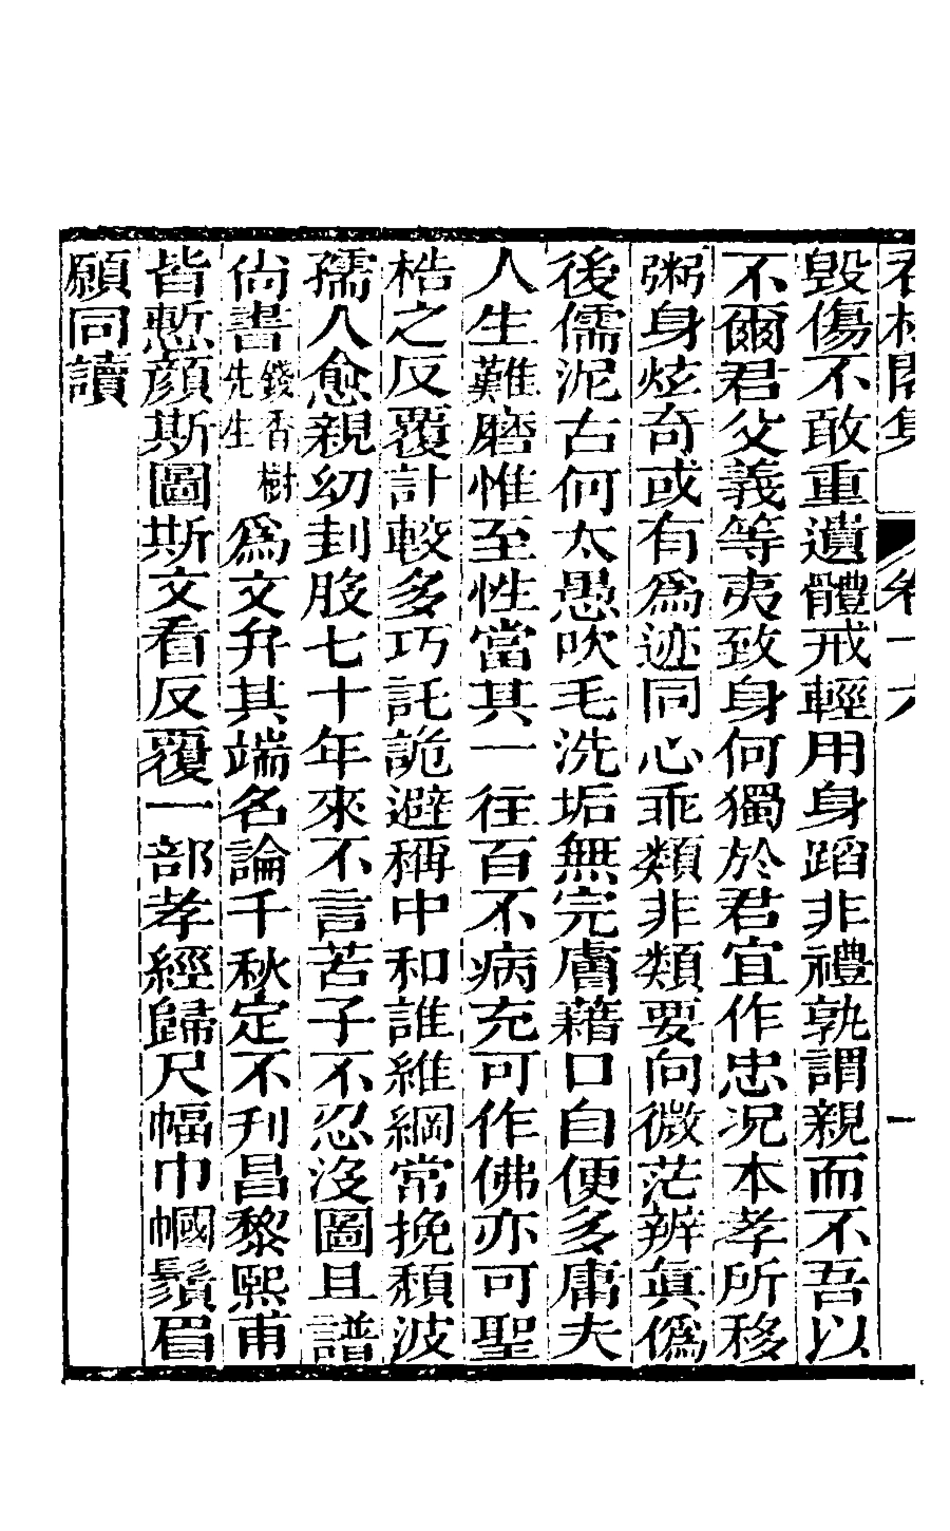 毀傷不敢重遺體戒輕用身蹈非禮孰謂親而不吾以
不爾君父義等夷致身何獨於君宜作忠况本孝所移
粥身炫奇或有爲迹同心乖類非類要向微茫辨眞僞
後儒泥古何太愚吹毛洗垢無完膚藉口自便多庸夫
人生難磨惟至性當其一往百不病充可作佛亦可聖
梏之反覆計較多巧託詭避稱中和誰維綱常挽頹波
孺人愈親幼刲股七十年來不言苦子不忍沒圖且譜
尙書錢香樹先生爲文弁其端名論千秋定不刋昌黎熙甫
皆慙顔斯圖斯文看反覆一部孝經歸尺幅巾幗鬚眉
願同讀